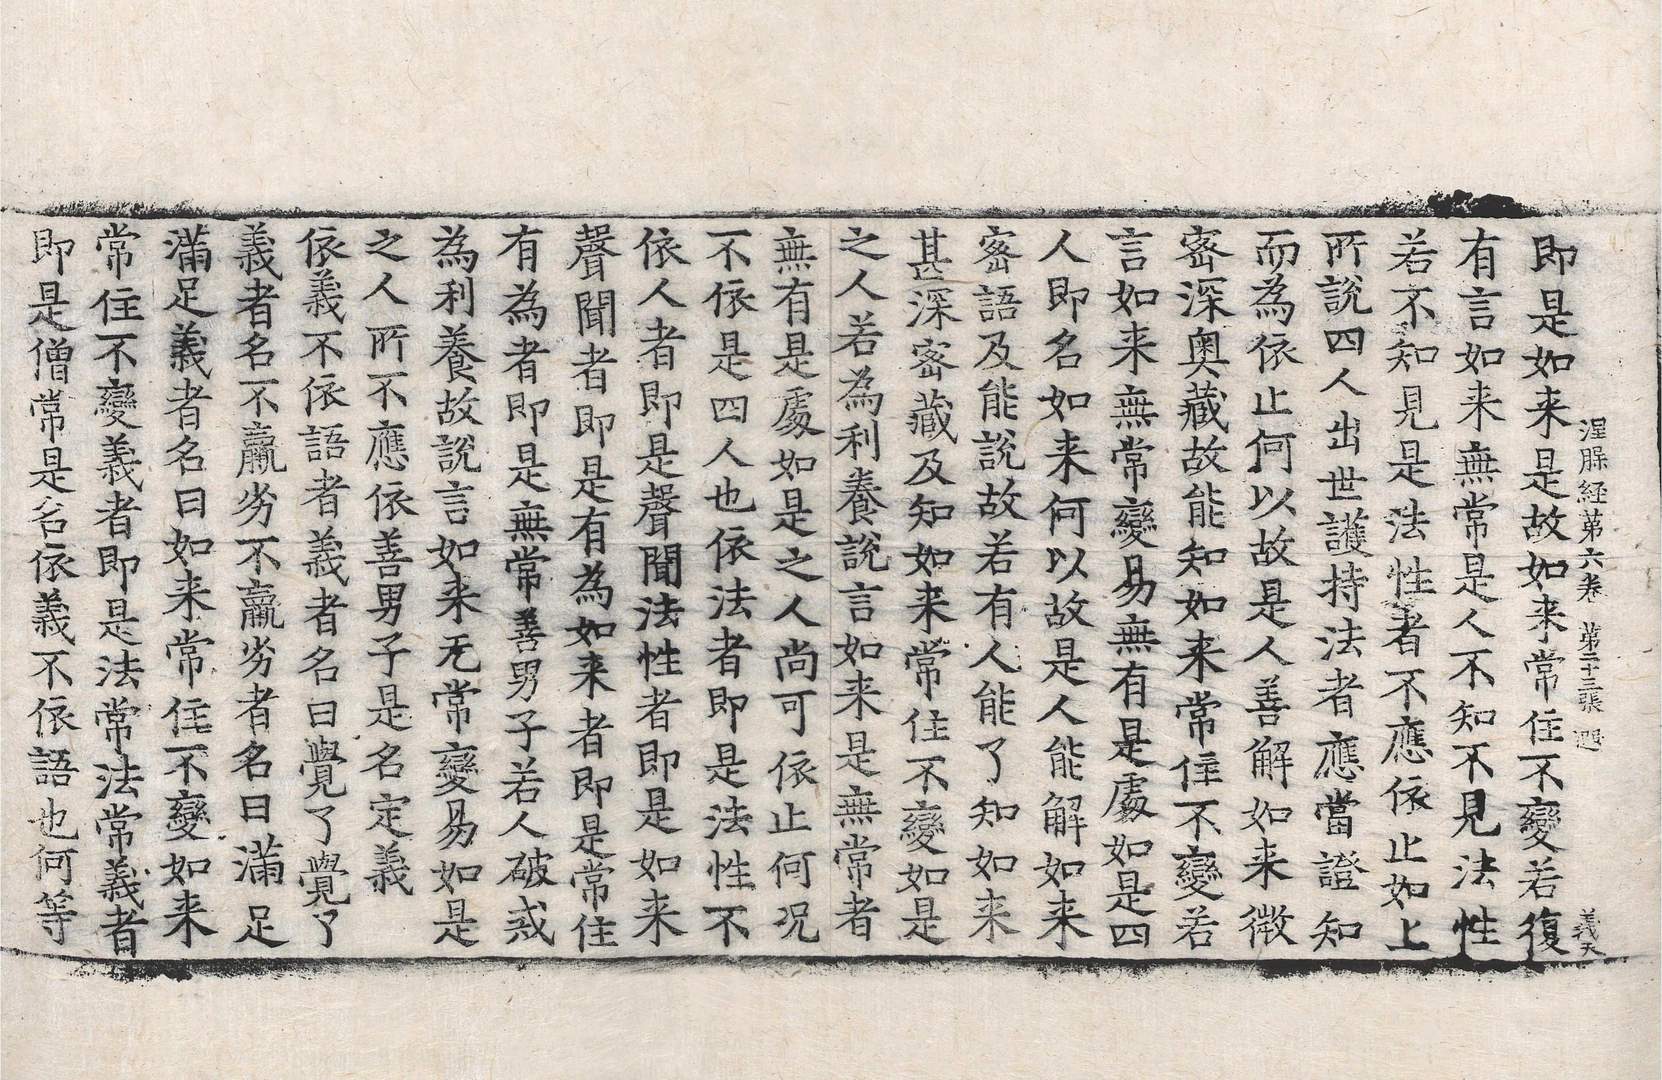 涅槃経第六卷 第二十三張 遐
義天
即是如来是故如来常住不變若復
有言如来無常是人不知不見法性
若不知見是法性者不應依止如上
所說四人出世護持法者應當證知
而為依止何以故是人善解如来微
宻深奥藏故能知如来常住不變若
言如来無常變易無有是處如是四
人即名如来何以故是人能解如来
宻語及能說故若有人能了知如来
甚深宻藏及知如来常住不變如是
之人若為利養說言如来是無常者
無有是處如是之人尚可依止何况
不依是四人也依法者即是法性不
依人者即是聲聞法性者即是如来
聲聞者即是有為如来者即是常住
有為者即是無常善男子若人破戒
為利養故說言如来无常變易如是
之人所不應依善男子是名定義
依義不依語者義者名曰覺了覺了
義者名不羸劣不羸劣者名曰滿足
滿足義者名曰如来常住不變如来
常住不變義者即是法常法常義者
即是僧常是名依義不依語也何等